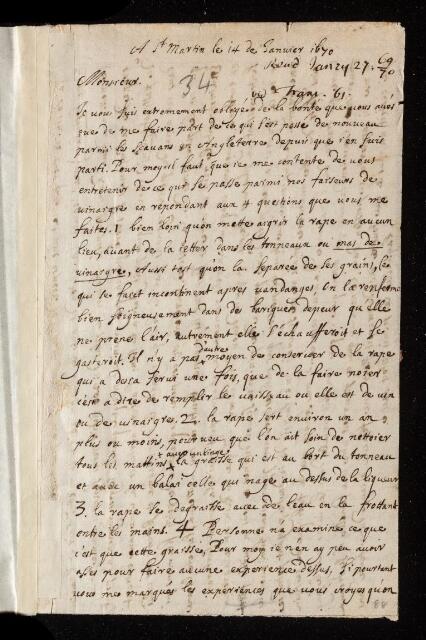 A St Martin le 14 de Janvier 1670
Recud Janry 27. 69/70
Monsieur.
34
vid Trans. 61.
Je vous suis extremement obligé de la bonté que vous avés
eue de me faire part de ce qui s'est passé de nouveau
parmi les sçavans en Angleterre depuis que j'en suis
parti. Pour moy il faut que ie me contente de vous
entretenir de ce qui se passe parmi nos faiseurs de
vinaigre en repondant aux 4 questions que vous me
faites. 1. bien loin qu'on mette aigrir la rape en aucun
lieu, avant de la letter dans les tonneaux ou mas de
vinaigre, Aussi tost qu'on la separee de ses grains, (ce
qui se fait incontinent apres vandanges, on la renferme
bien soigneusement dans des bariques de peur qu'elle
ne prene l'air, autrement elle s'echaufferoit et se
gasteroit. Il n'y a pas d'autre moyen de conserver de la rape
qui a desja servi une fois, que de la faire noier
c'est a dire de remplir le vaisseau ou elle est de vin
ou de vinaigre. 2. la rape sert environ un an
plus ou moins, pourveu que l'on ait soin de nettoier
tous les mattins avec un linge la graisse qui est au bort du tonneau
et avec un balai celle qui nage au dessus de la liqueur
3. la rape se degraisse avec de l'eau en la frottant
entre les mains. 4 Personne n'a examiné ce que
c'est que cette graisse, Pour moy ie n'en ay peu avoir
assés pour faire aucune experience dessus, Si pourtant
vous me marqués les experiences que vous croyés qu'on